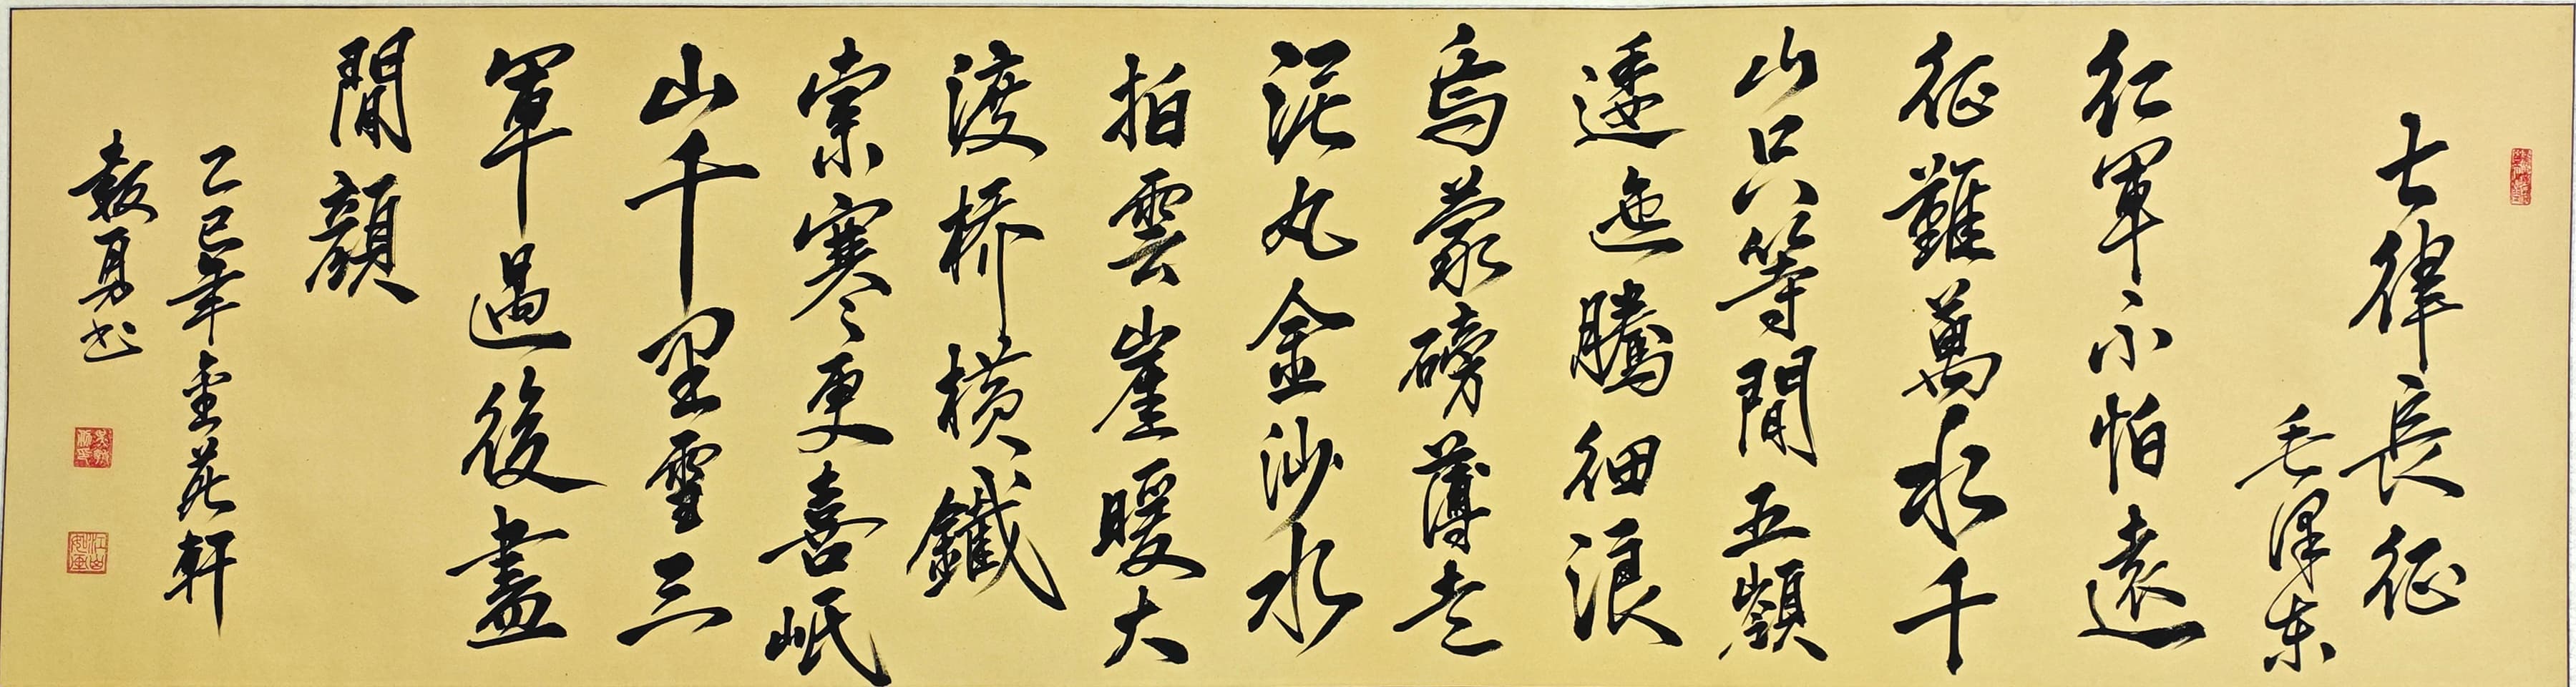 七律長征
毛澤东
红軍不怕遠
征難萬水千
山只等閒五嶺
逶迤騰细浪
烏蒙磅薄走
泥丸金沙水
拍雲崖暖大
渡桥横鐵
索寒更喜岷
山千里雪三
軍過後盡
閒顔
乙巳年軒
勇书
江山如画